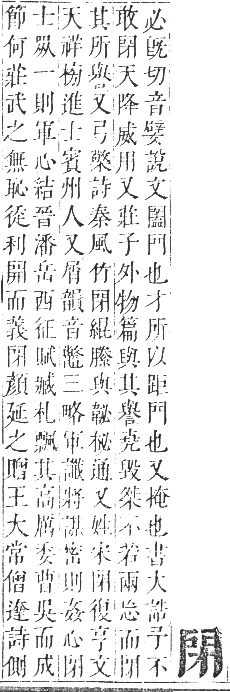 閉
必旣切音嬖說文闔門也才所以距門也又掩也書大誥予不
敢閉天降威用又莊子外物篇與其譽堯毀桀不若兩忘而閉
其所譽又弓檠詩秦風竹閉緄縢與䪐秘通又姓宋閉復亨文
天祥榜進士賓州人又屑韻音虌三略軍讖將謀密則姦心閉
士眾一則軍心結晉潘岳西征賦臧札飄其高厲委曹吳而成
節何莊武之無恥從利開而義閉顏延之贈王大常僧達詩側